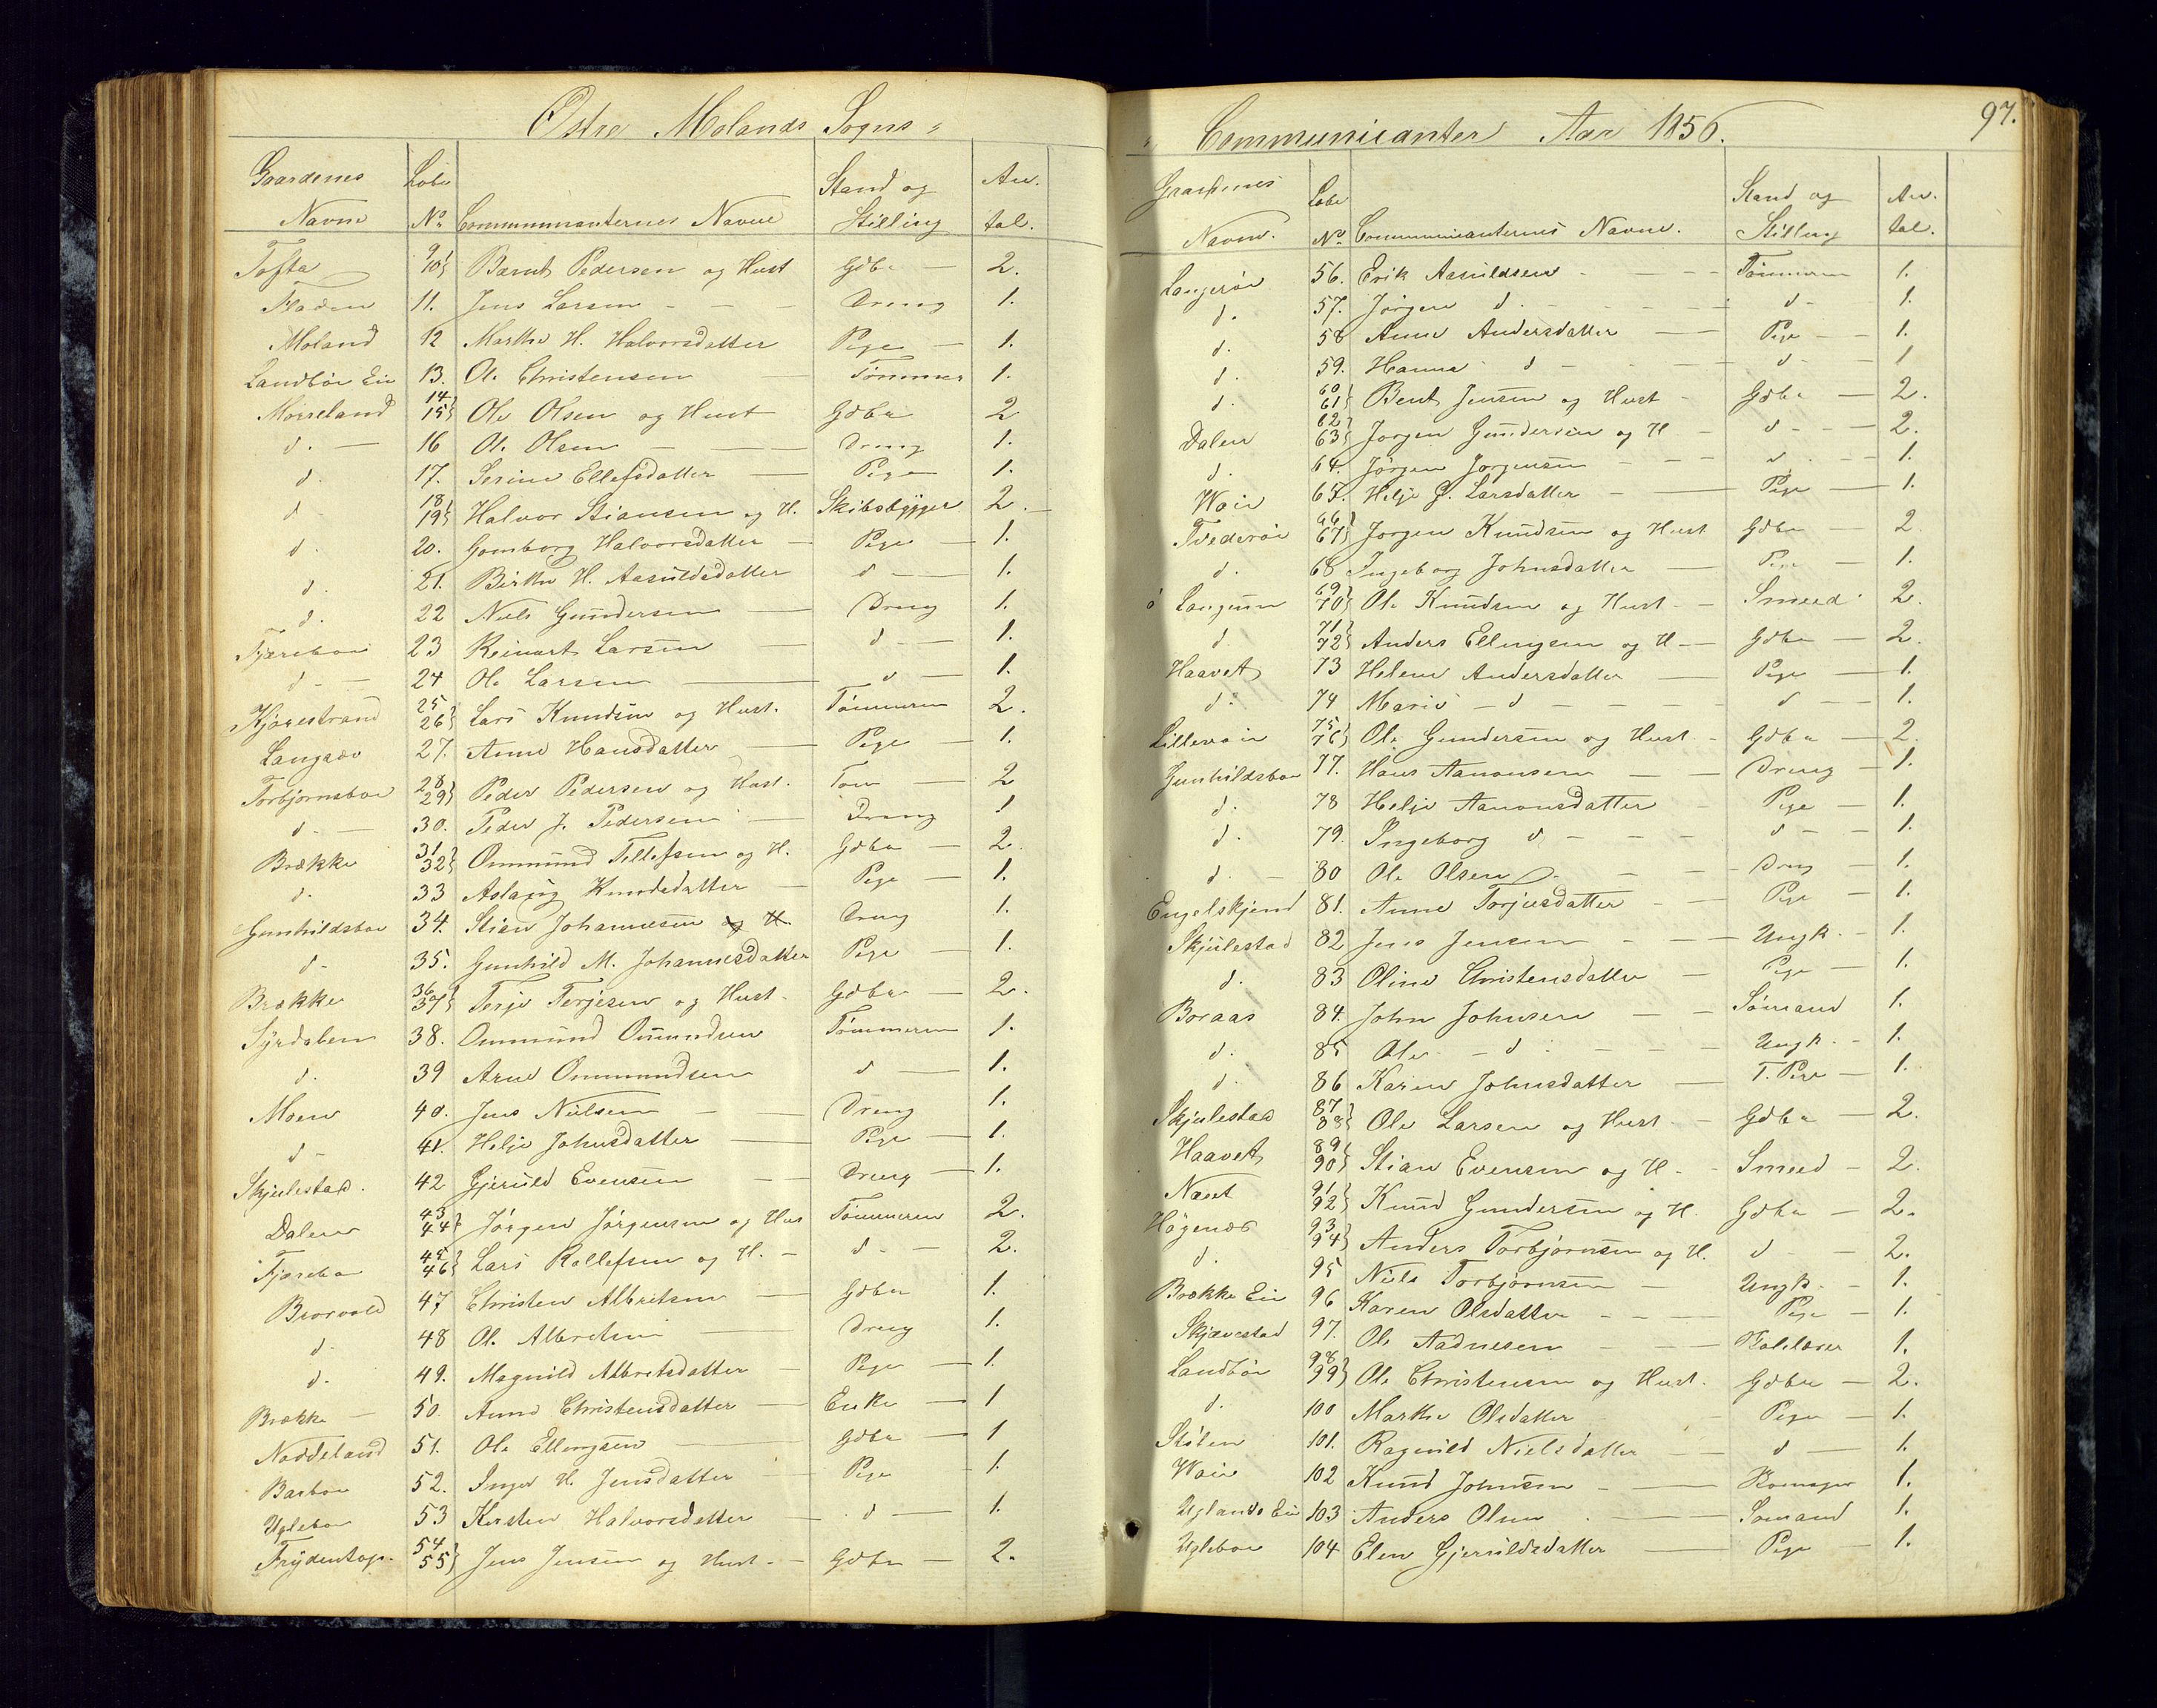 Østre Molands Sogns
Gaardenes Navne Løbe No. Communicanternes Navne Stand og Stilling An-tal.
Tofta 9 10 Barnt Pedersen og Hust Gdbr 2.
Fladen 11. Jens Larsen Dreng 1.
Moland 12 Marthe H. Halvorsdatter Pige 1.
Landbøe Eie 13. Ole Christensen Tømmer 1.
Mørreland 14 15 Ole Olsen og Hust Gdbr 2
d. 16 Ole Olsen Dreng 1.
d. 17. Serine Ellefsdatter Pige 1.
d 18 19 Halvor Stiansen og H. Skibsbygger 2.
d. 20. Gomborg Halvorsdatter Pige 1.
d. 21. Birthe H. Aasuldsdatter d 1.
d. 22 Niels Gundersen Dreng 1.
Tjæreboe 23 Reinart Larsen d 1.
d 24 Ole Larsen d 1.
Kjørestrand 25 26 Lars Knudsen og Hust. Tømmerm 2.
Langsæv 27. Anne Hansdatter Pige 1.
Torbjørnsboe 28 29 Peder Pedersen og Hust. Tøm 2
d. 30. Peder J. Pedersen Dreng 1
Brække 31 32 Ommund Tellefsen og H. Gdbr 2
d. 33 Aslaug Knudsdatter Pige 1.
Gunhildsboe 34. Stian Johannesen og H. Dreng 1.
d. 35. Gunhild M. Johannesdatter Pige 1.
Brække 36 37 Terje Terjesen og Hust. Gdbr 2.
Syrdalen 38. Ommund Omundsen Tømmerm 1.
d. 39 Arne Ommundsen d 1.
Moen 40. Jens Nielsen Dreng 1.
d 41. Helje Johnsdatter Pige 1.
Skjulestad. 42 Gjeruld Evensen Dreng 1.
Dalen 43 44 Jørgen Jørgensen og Hus Tømmerm 2.
Tjærebo 45 46 Lars Rollefsen og H. d 2.
Brorvold 47 Christen Albretsen Gdbr 1.
d. 48 Ole Albretsen Dreng 1.
d. 49. Magnild Albretsdatter Pige 1.
Brække 50. Anne Christensdatter Enke 1
Noddeland 51. Ole Ellingsen Gdbr 1
Barboe 52. Inger H. Jensdatter Pige 1.
Ugleboe 53 Kirsten Halvorsdatter d 1.
Frydentop. 54 55 Jens Jensen og Hust. Gdbr 2.
Communicanter Aar 1856. 97.
Gaardenes Navne. Løbe No. Communicanternes Navne. Stand og Stilling An-tal.
Langerøe 56. Erik Aasuldsen Tømmerm 1.
d. 57. Jørgen d. d 1.
d. 58 Anne Andersdatter Pige 1.
d 59. Hanna d d 1
d. 60 61 Bent Jensen og Hust Gdbr 2.
Dalen 62 63 Jørgen Gundersen og H d 2.
d. 64. Jørgen Jørgensen d 1.
Woie 65. Helje G. Larsdatter Pige 1.
Tvederøe 66 67 Jørgen Knudsen og Hust Gdbr 2.
d. 68 Ingeborg Johnsdatter Pige 1.
Langeum 69 70 Ole Knudsen og Hust. Smeed 2.
d 71 72 Anders Ellingsen og H Gdbr 2.
Haavet 73 Helene Andersdatter Pige 1.
d. 74 Marie d d 1.
Lillevoie 75 76 Ole Gundersen og Hust Gdbr 2.
Gunhildsboe 77. Hans Aanonsen Dreng 1.
d. 78 Helje Aanonsdatter Pige 1.
d. 79. Ingeborg d d 1.
d. 80 Ole Olsen Dreng 1.
Engelskjend 81. Anne Torjusdatter Pige 1.
Skjulestad 82 Jens Jensen Ungk. 1.
d. 83 Oline Christensdatter Pige 1.
Boraas 84. John Johnsen Sømand 1.
d. 85 Ole d Ungk. 1.
d. 86 Karen Johnsdatter T. Pige 1.
Skjulestad 87 88 Ole Larsen og Hust Gdbr 2.
Haavet 89 90 Stian Evensen og H. Smeed 2.
Næset 91 92 Knud Gundersen og H. Gdbr 2.
Høgenæs 93 94 Anders Torbjørnsen og H. d 2.
d. 95 Niels Torbjørnsen Ungk. 1.
Brække Eie 96 Karen Olsdatter Pige 1.
Skjævestad 97. Ole Aadnesen 1.
Landbøe 98 99 Ole Christensen og Hust. Gdbr 2.
d. 100 Marthe Olsdatter Pige 1.
Stølen 101. Ragnild Nielsdatter d 1.
Woie 102 Knud Johnsen 1.
Uglands Eie 103 Anders Olsen Sømand 1.
Ugleboe 104 Elen Gjeruldsdatter Pige 1.